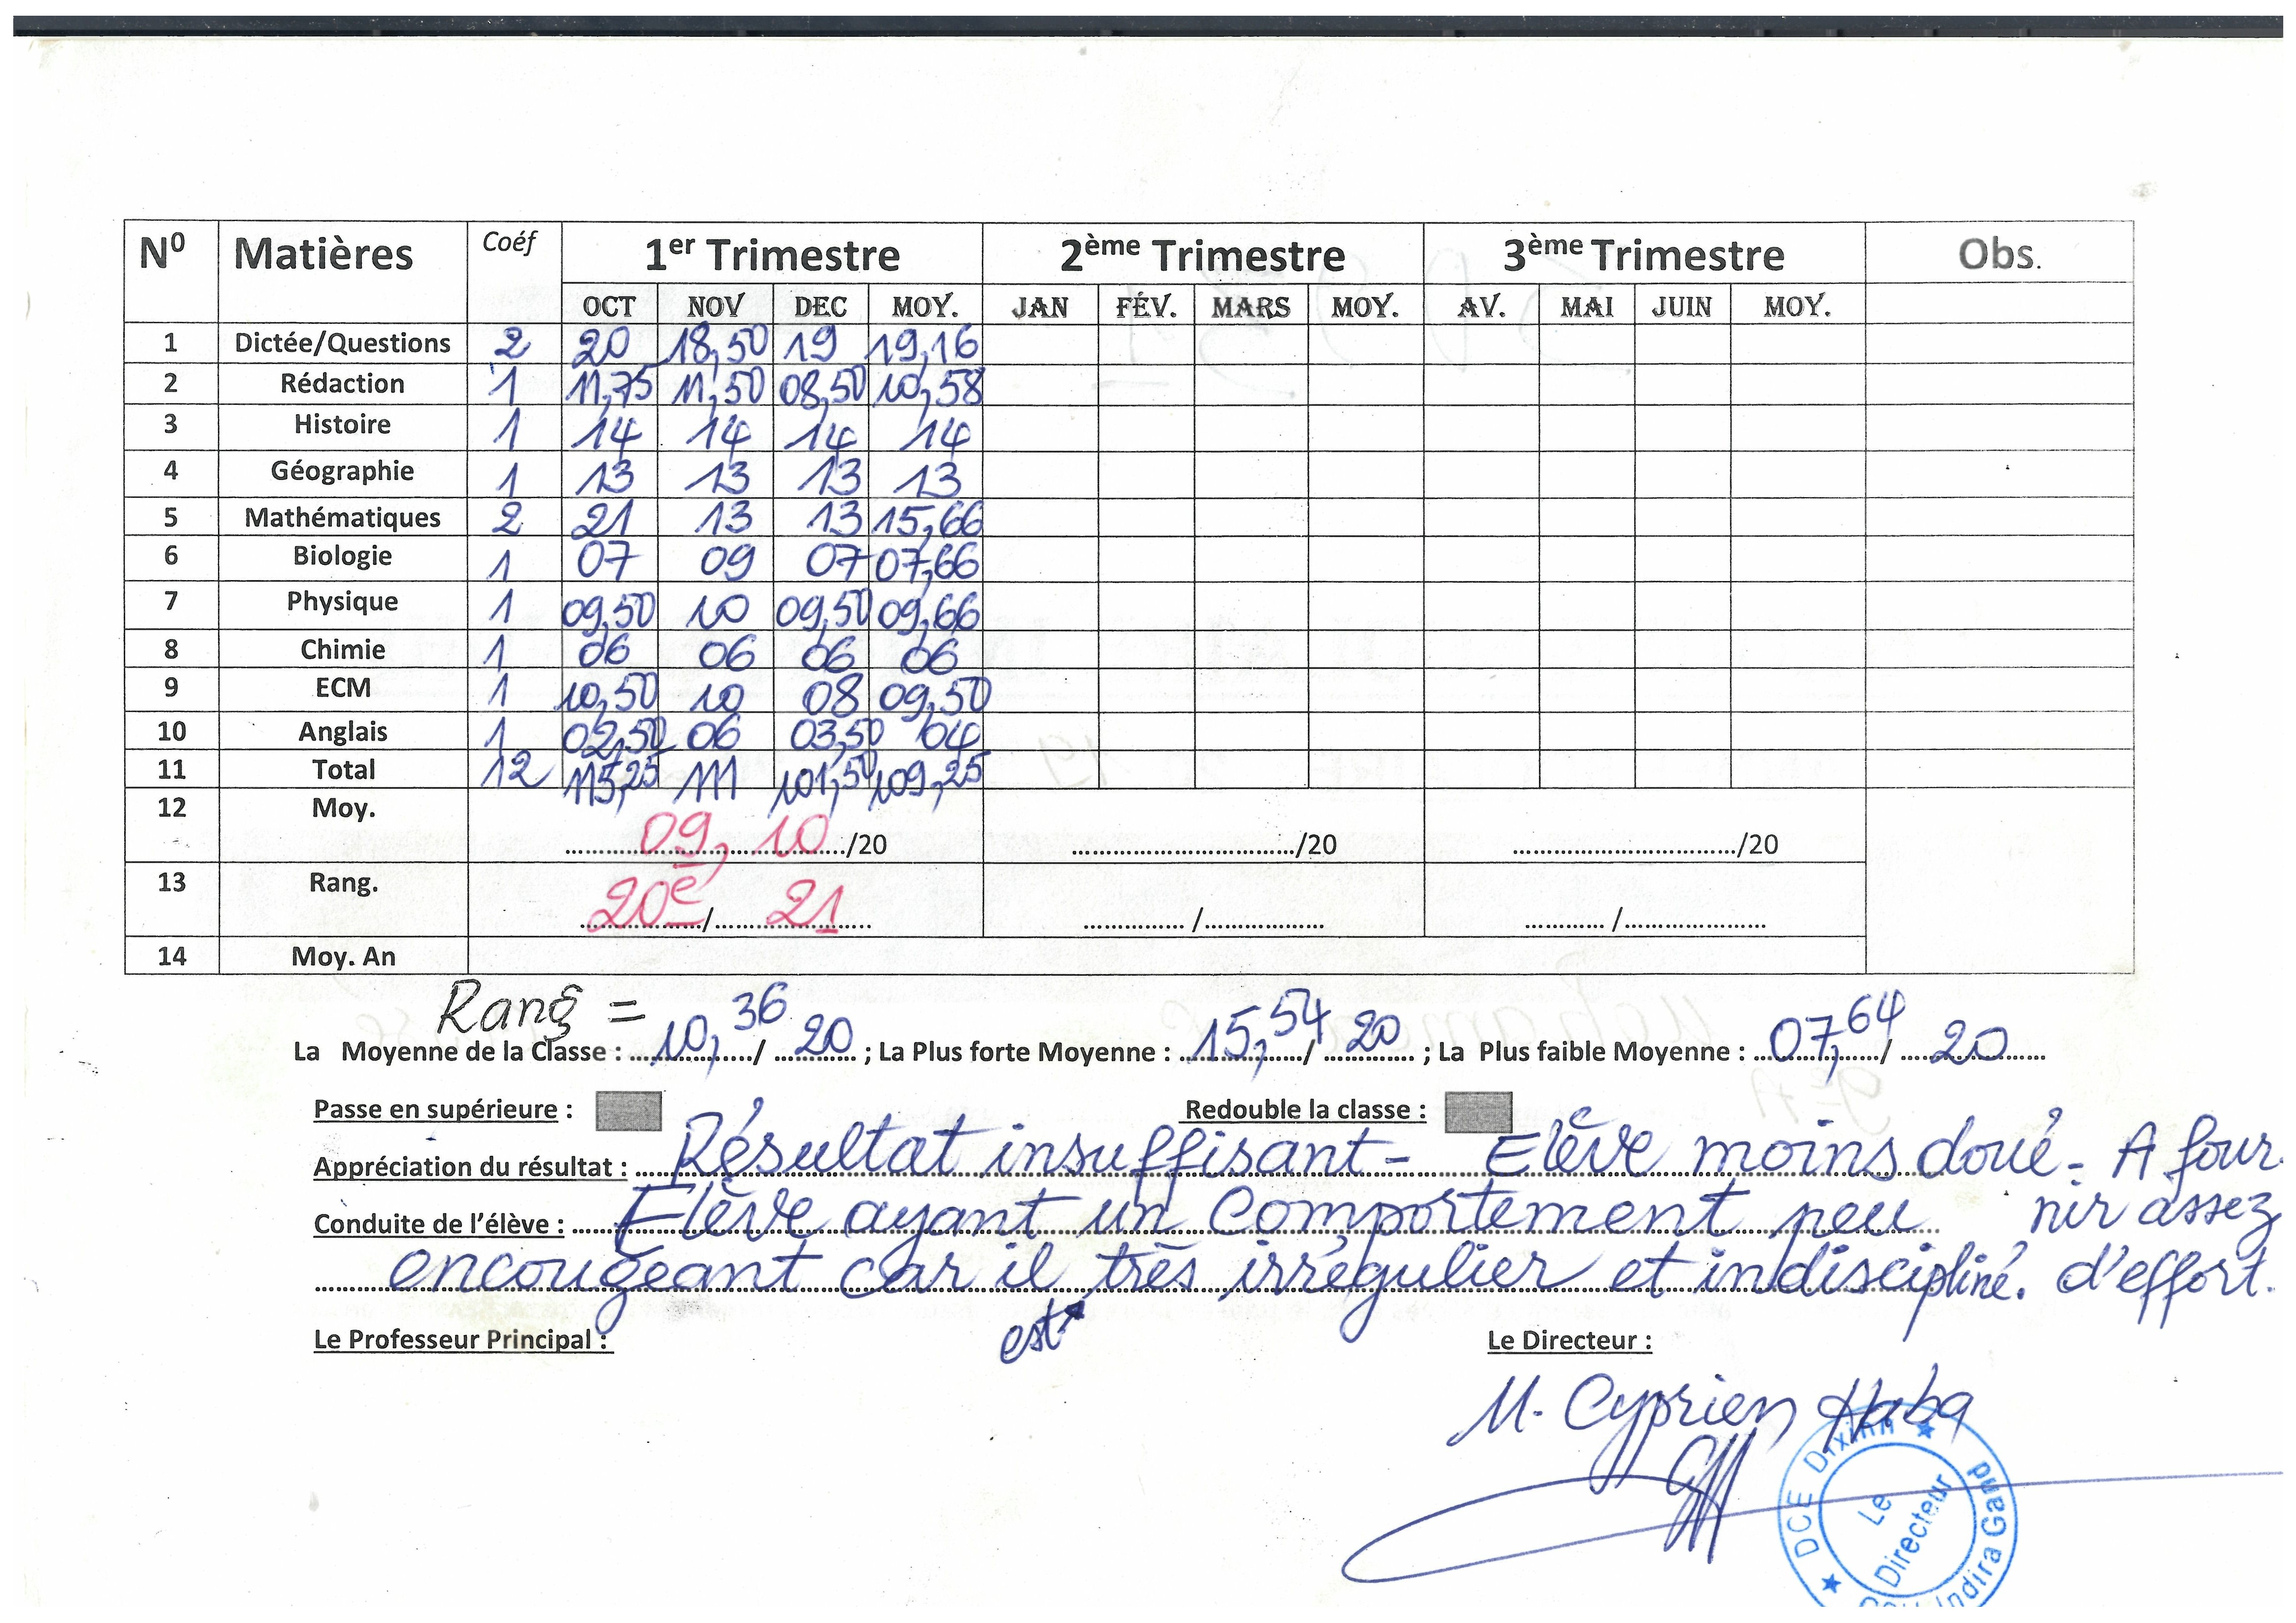 N⁰ Matières Coéf 1er Trimestre 2ème Trimestre 3ème Trimestre Obs.
OCT NOV DEC MOY. JAN FÉV. MARS MOY. AV. MAI JUIN MOY.
1 Dictée/Questions 2 20 18,50 19 19,16
2 Rédaction 1 11,75 11,50 08,50 10,58
3 Histoire 1 14 14 14 14
4 Géographie 1 13 13 13 13
5 Mathématiques 2 21 13 13 15,66
6 Biologie 1 07 09 07 07,66
7 Physique 1 09,50 10 09,50 09,66
8 Chimie 1 06 06 06 06
9 ECM 1 10,50 10 08 09,50
10 Anglais 1 02,50 06 03,50 04
11 Total 12 115,25 111 101,50 109,25
12 Moy. 09,10 /20 /20 /20
13 Rang. 20e / 21 / /
14 Moy. An
Rang =
La Moyenne de la Classe : 10,36 / 20 ; La Plus forte Moyenne : 15,54 / 20 ; La Plus faible Moyenne : 07,64 / 20
Passe en supérieure : Redouble la classe :
Appréciation du résultat : Résultat insuffisant - Elève moins doué - A four-
Conduite de l'élève : Elève ayant un comportement peu nir assez
encougeant car il très irrégulier et indiscipliné. d'effort.
est
Le Professeur Principal : Le Directeur :
M. Cyprien Haba
DCE Dixinn
Indira Gand
Le Directeur